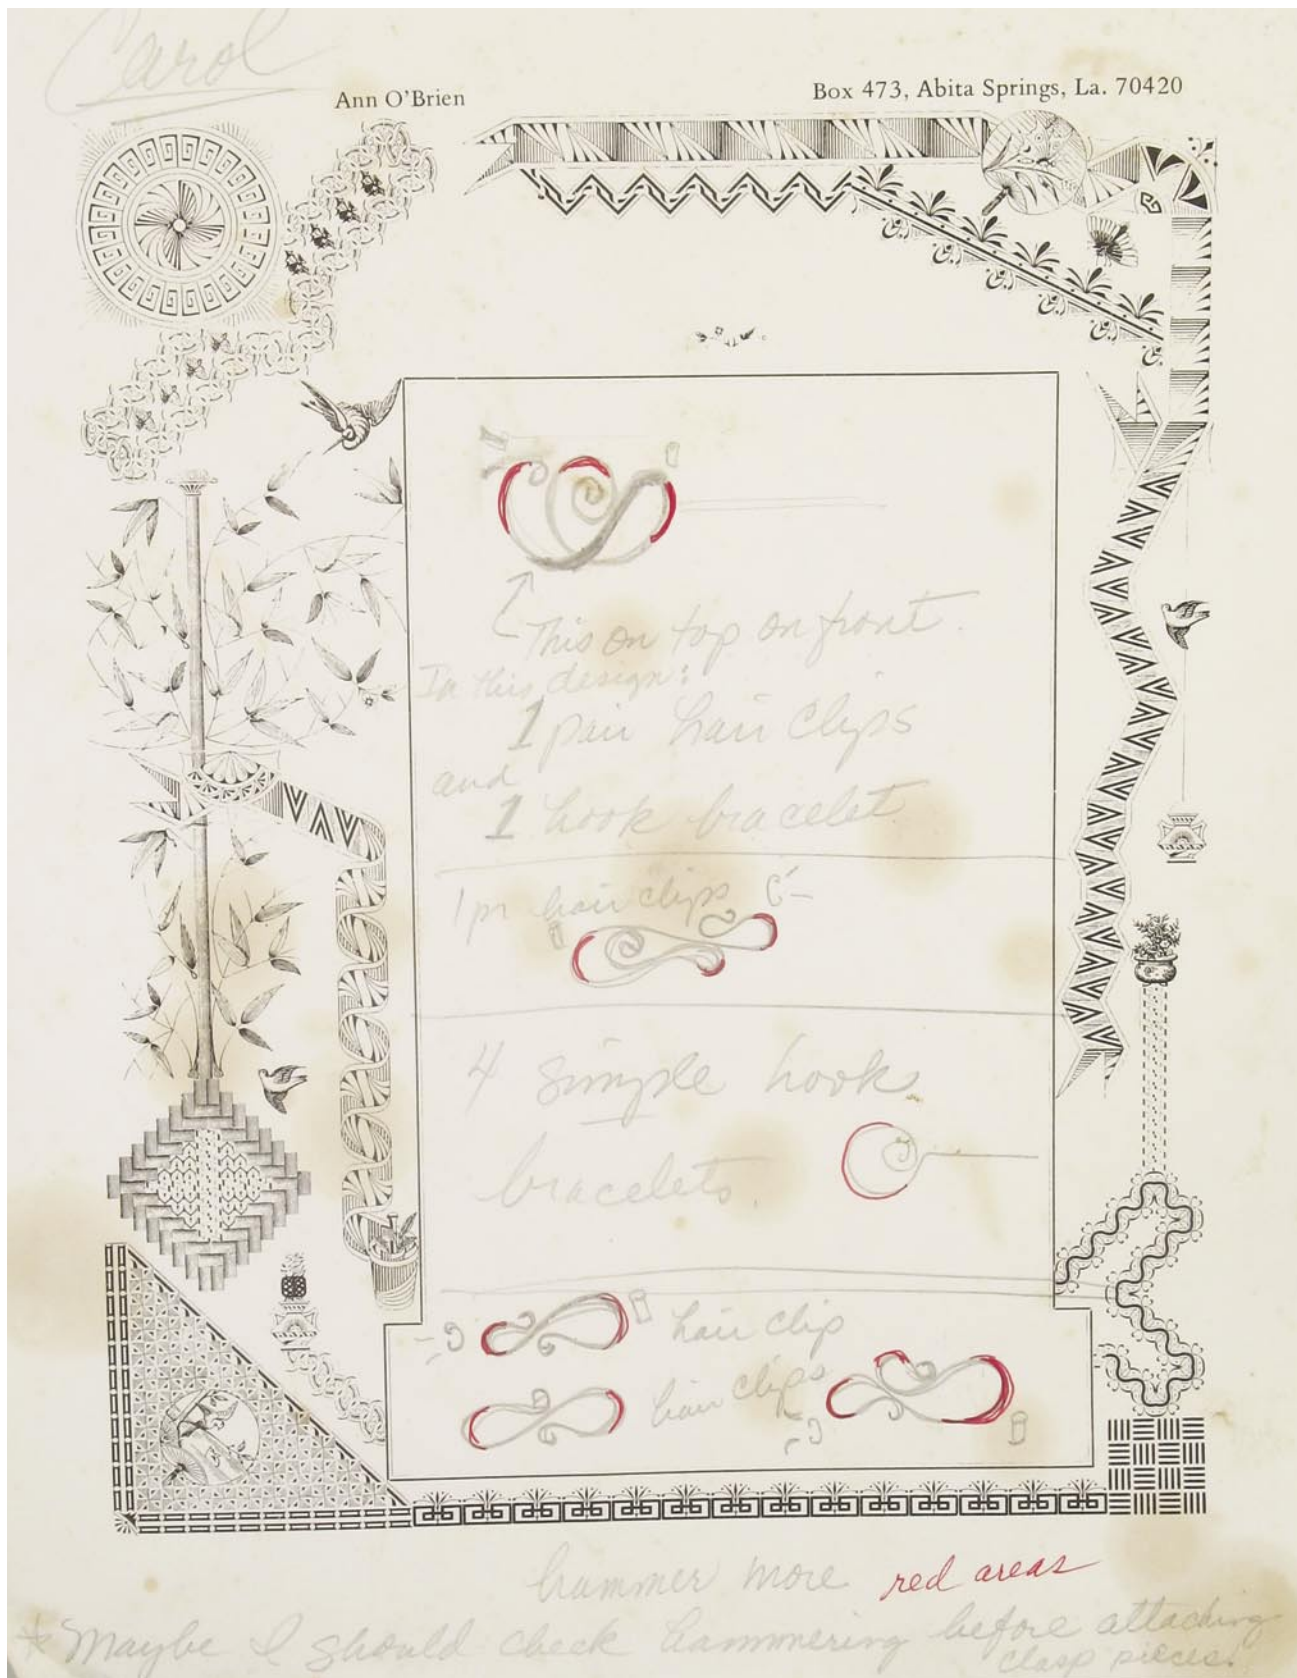 Carol
Ann O'Brien
Box 473, Abita Springs, La. 70420
This on top on front.
In this design:
1 pair hair clips
and
1 hook bracelet
1 pr hair clips
4 simple hook
bracelets.
hair clip
hair clips
hammer more red areas
* Maybe I should check hammering before attaching
clasp pieces.